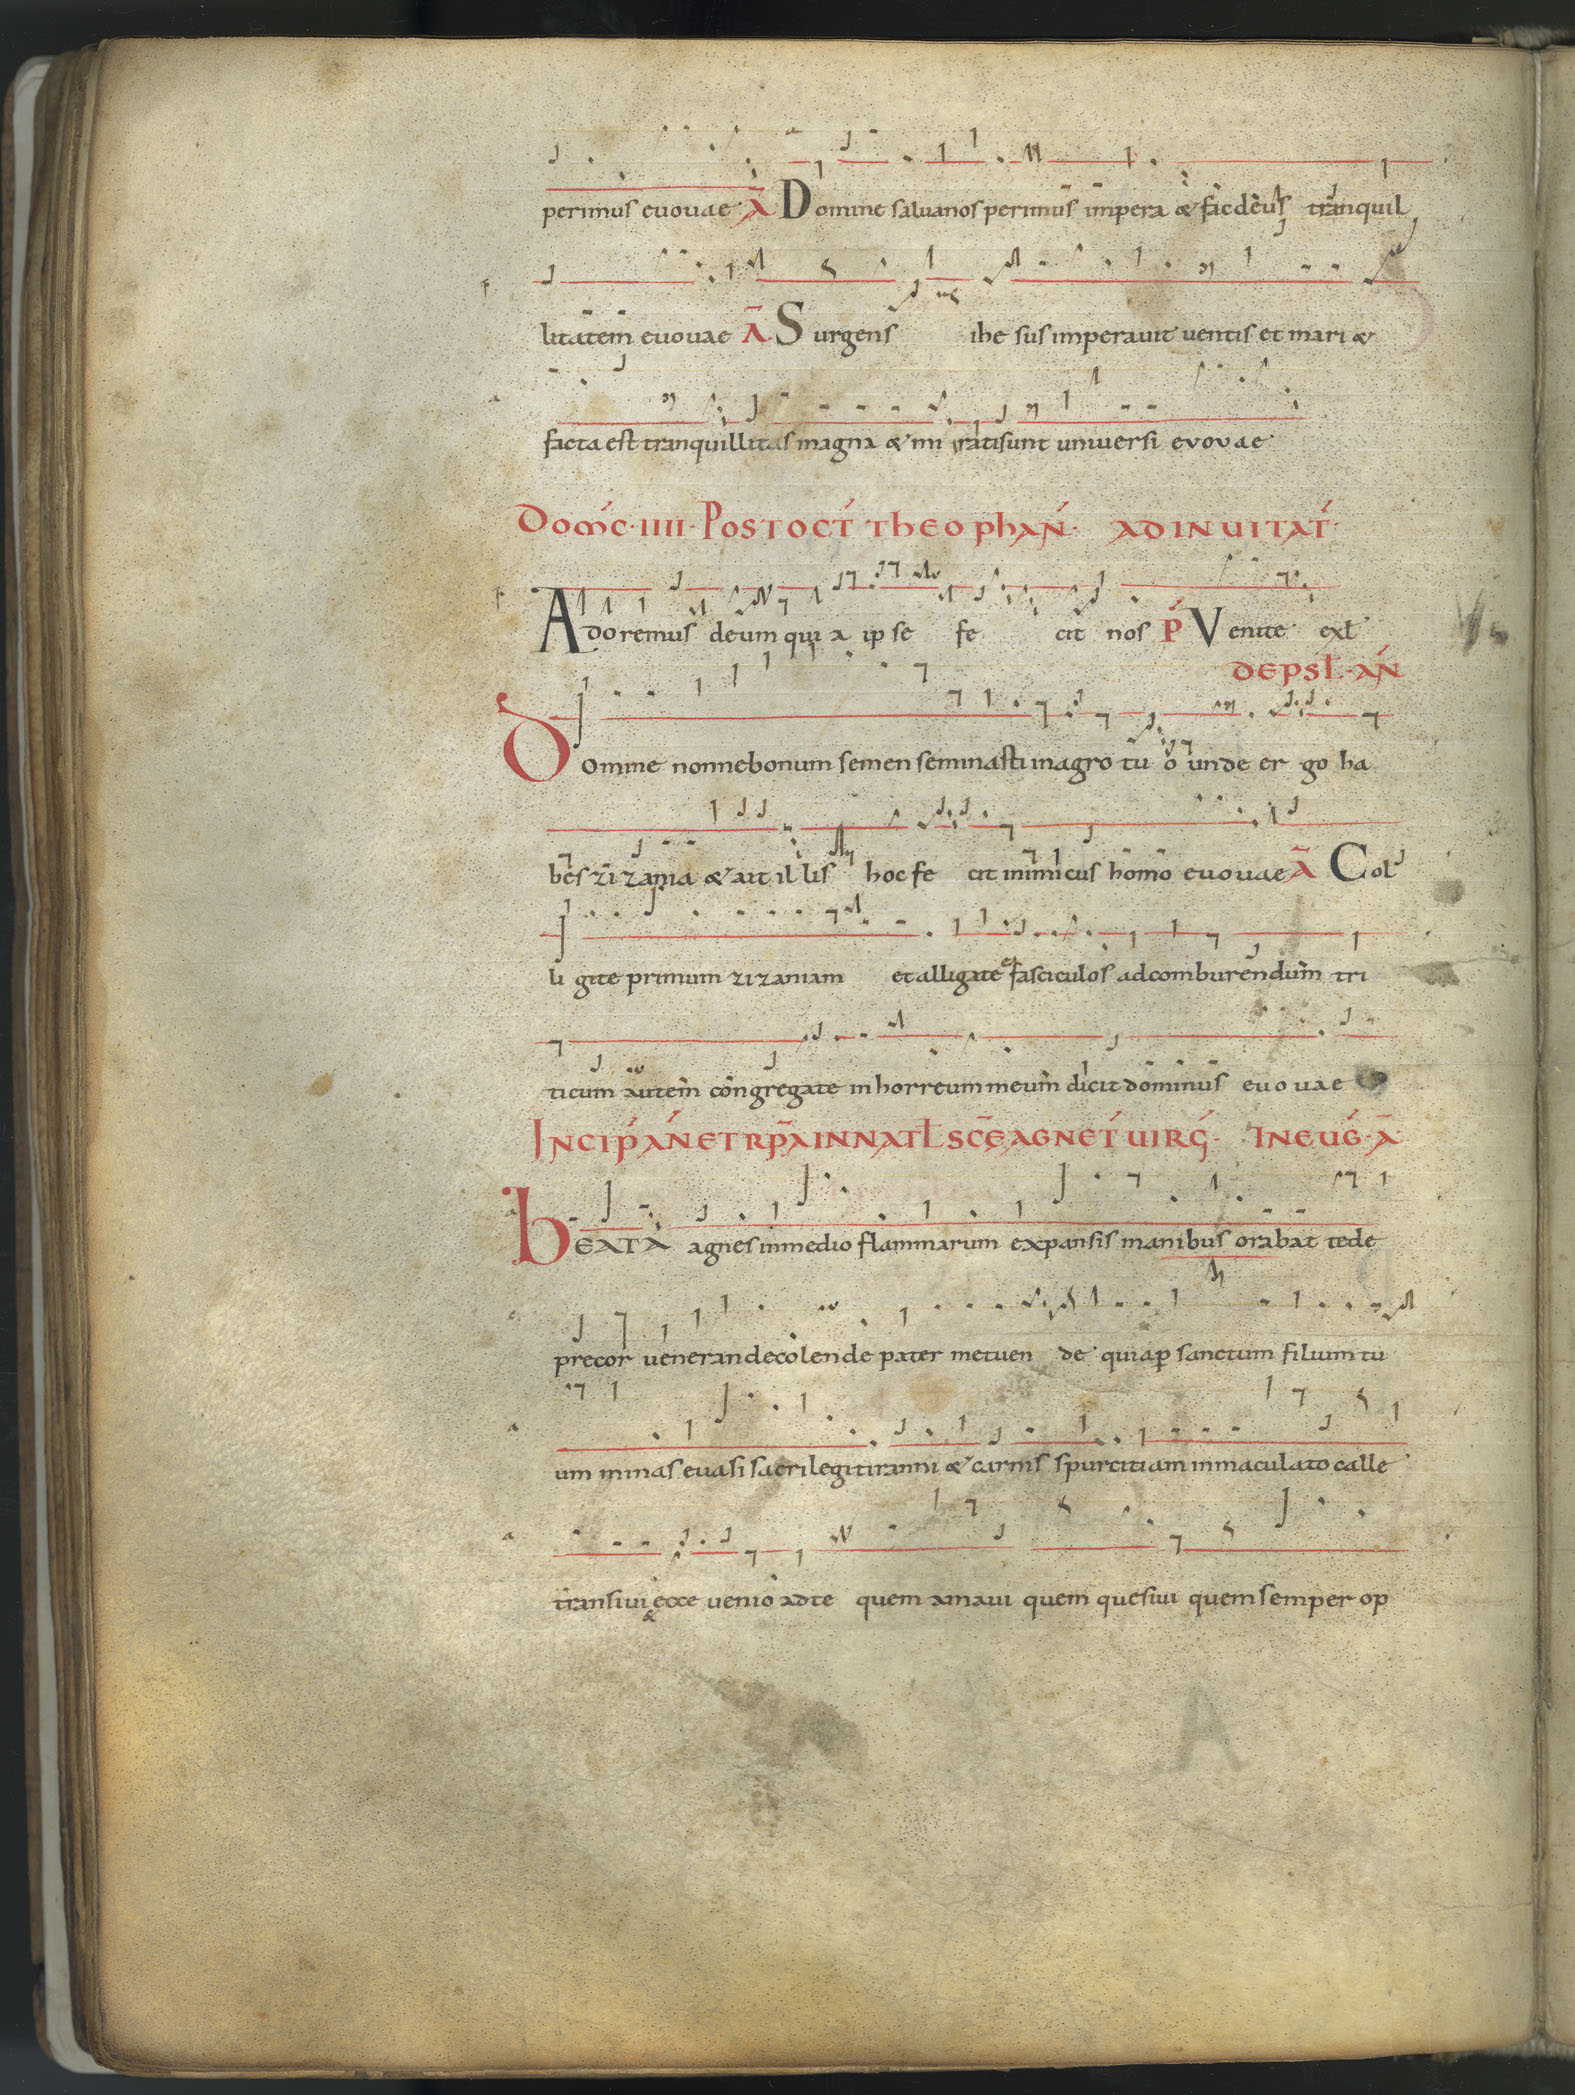 perimus euouae Ā Domine saluanos perimus impera & fac deus tranquil
litatem euouae Ā Surgens ihesus imperauit uentis et mari &
facta est tranquillitas magna & mi ratisunt uniuersi evovae
DOMC · IIII · POST OCT THEOPHAN · AD INUITAT ·
Adoremus deum qui a ipse fe cit nos P Venite exł
DE PSL · AN
Domine nonne bonum semen seminasti inagro tu o unde er go ha
bes zizania & ait illis hoc fe cit inimicus homo euouae Ā Col
li gite primum zizaniam et alligate fasciculos adcomburendum tri
ticum autem congregate inhorreum meum dicit dominus euouae
INCIP AN ET RP̄A IN NATL SCĒ AGNET UIRG · IN EUG · A
BEATA agnes inmedio flammarum expansis manibus orabat tede
precor uenerande colende pater metuen de quiap sanctum filium tu
um minas euasi sacrilegi tiranni & carnis spurcitiam inmaculato calle
transiui & ecce uenio adte quem amaui quem quesiui quem semper op